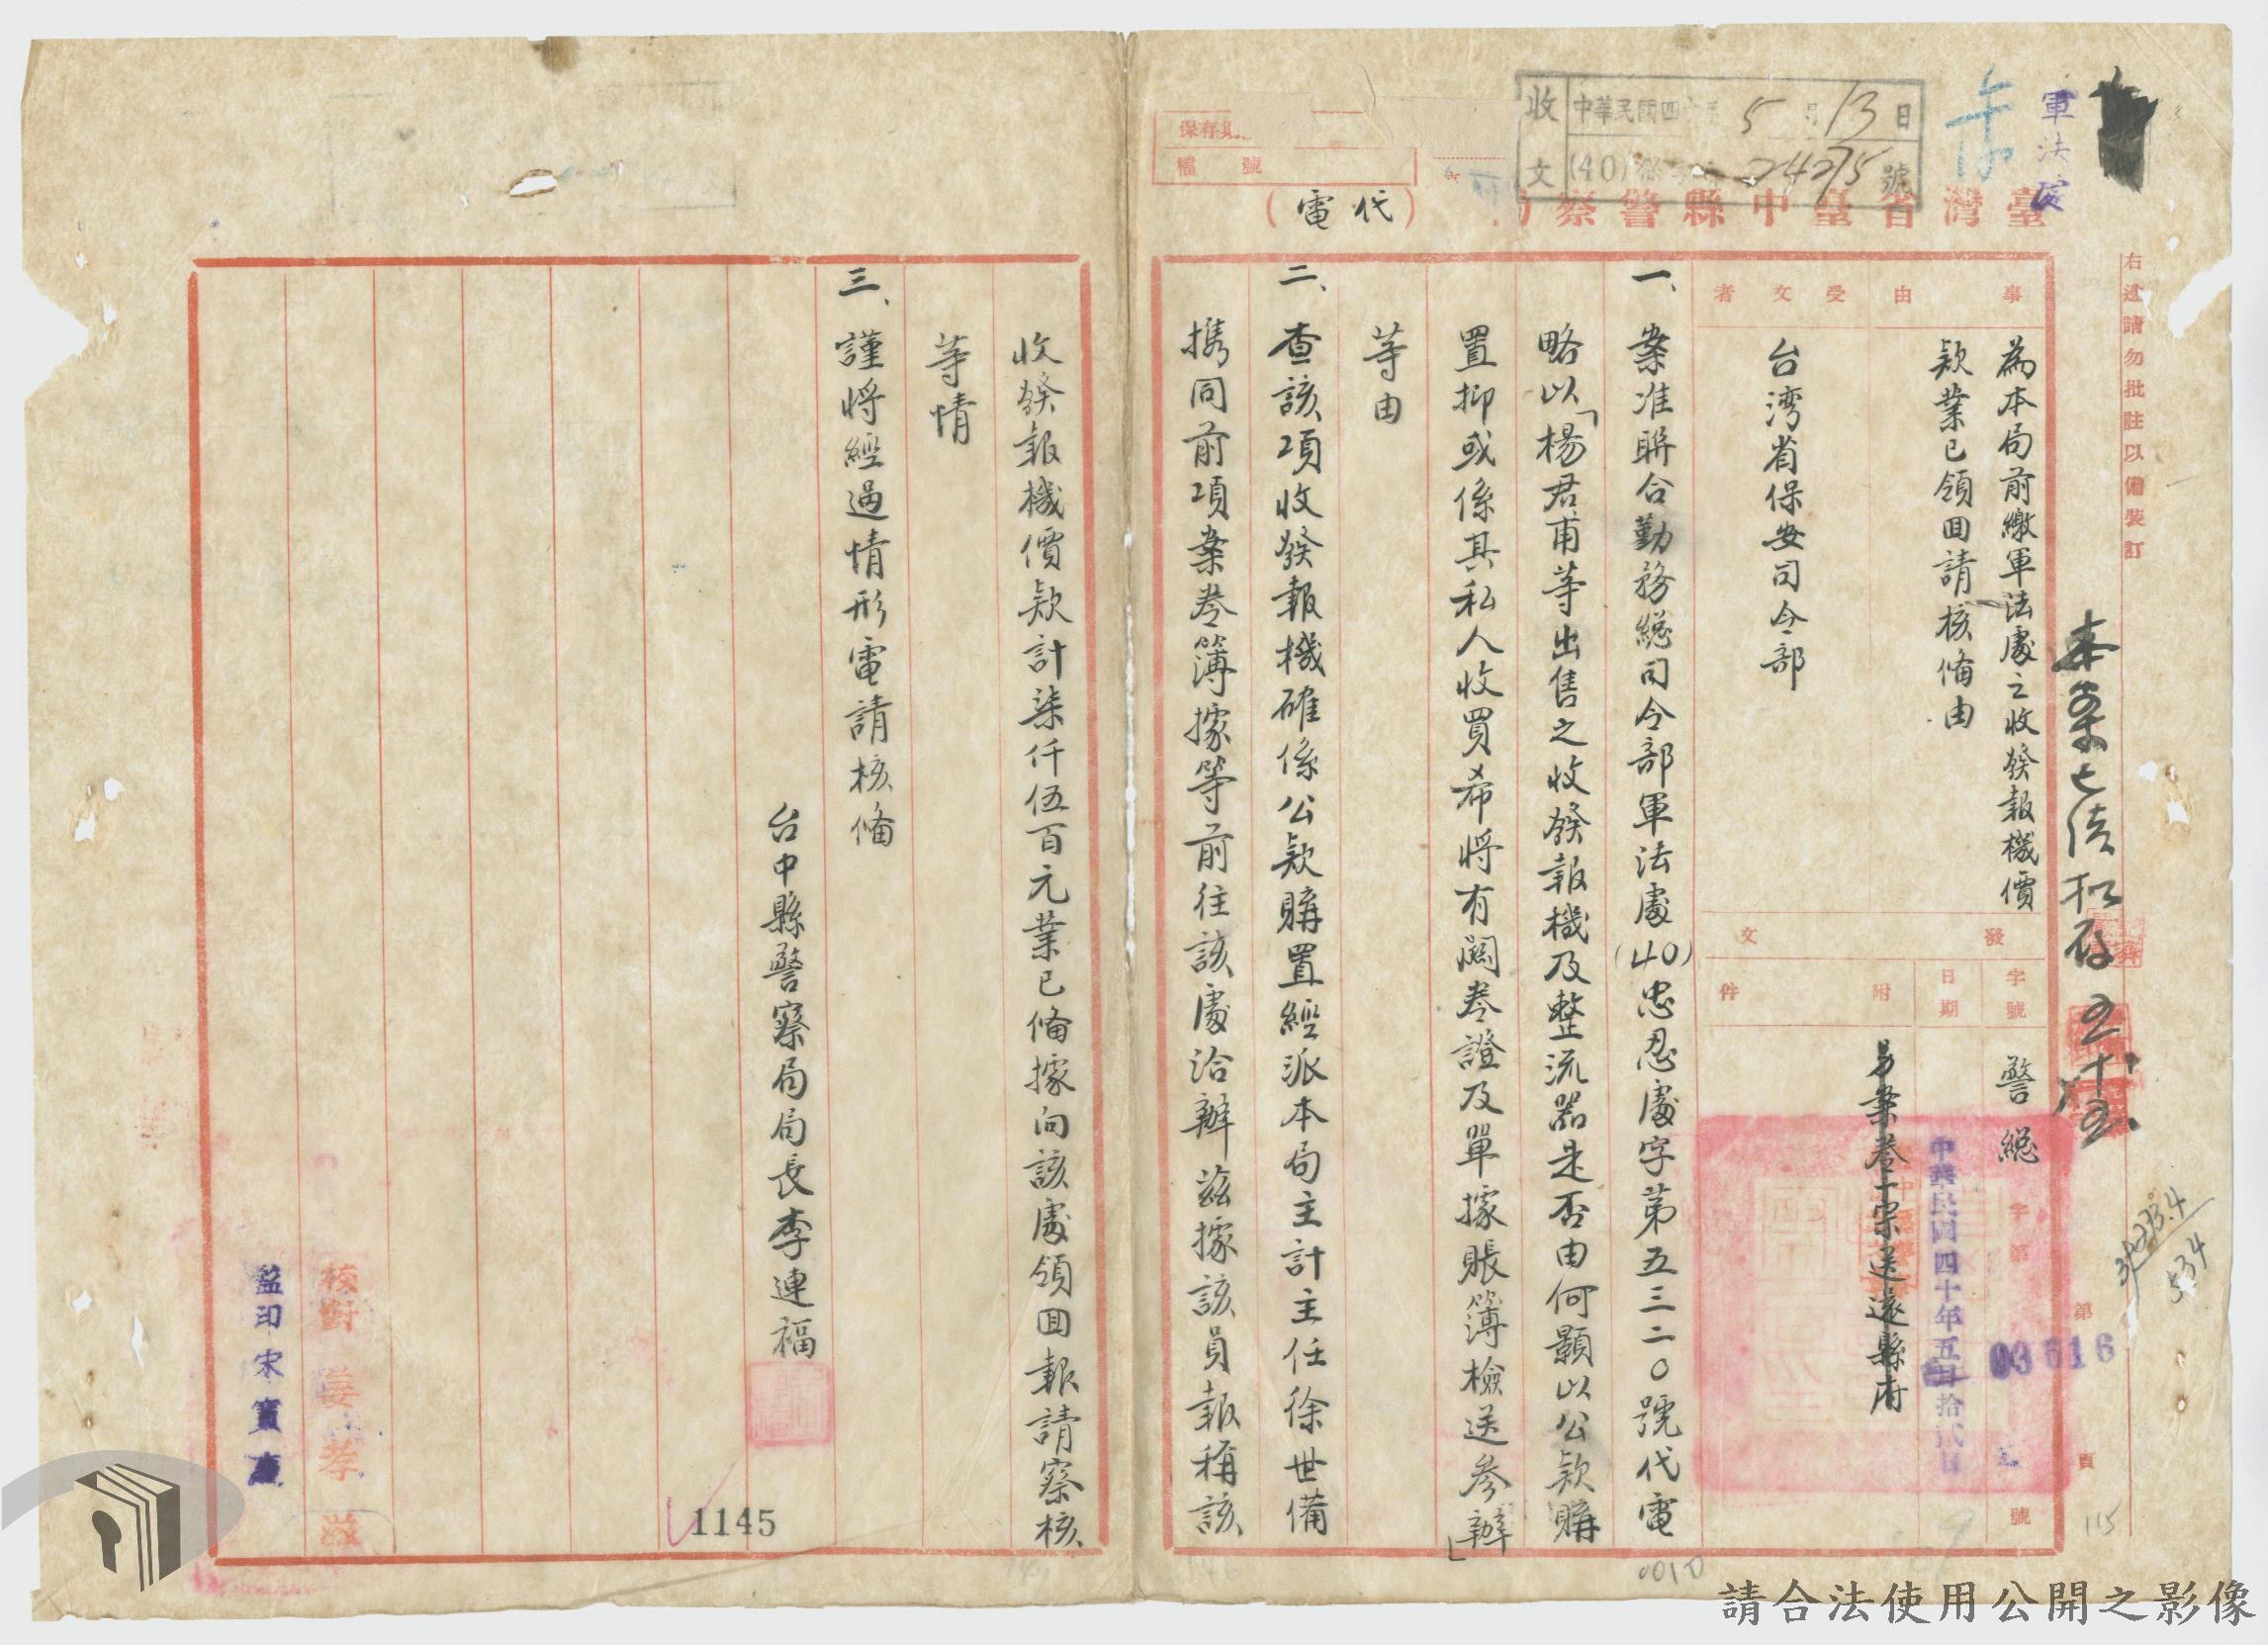 軍法處
收文
中華民國四十年5月13日
(40) 24275號
保存
檔號
臺灣省臺中縣警察局
(代電)
右邊請勿批註以備裝訂
事由
為本局前繳軍法處之收發報機價
款業已領回請核備由
受文者
台湾省保安司令部
發文
字號
警總字第03616號
日期
中華民國四十年五月拾弍日
附件
另案卷一宗送還縣府
第 頁
115
一、案准聯合勤務總司令部軍法處(40)忠忍處字第五三二〇號代電
略以「楊君甫等出售之收發報機及整流器是否由何顯以公款購
置抑或係其私人收買希將有關卷證及單據賬簿檢送參辦」
等由
二、查該項收發報機確係公款購置經派本局主計主任徐世備
携同前項案卷簿據等前往該處洽辦茲據該員報稱該
收發報機價款計柒仟伍百元業已備據向該處領回報請察核
等情
三、謹將經過情形電請核備
台中縣警察局局長李連福
校對
監印宋
1145
請合法使用公開之影像